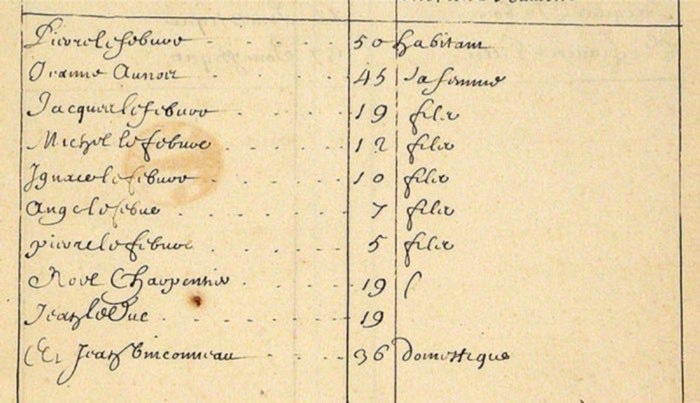 Pierre lefebure 50 habitant
Jeanne Aunois 45 sa femme
Jacques lefebure 19 filz
Michel lefebure 12 filz
Ignace lefebure 10 filz
Ange lefebue 7 filz
pierre lefebure 5 filz
Noel Charpentier 19
Jean le Duc 19
Et Jean binconneau 36 domestique